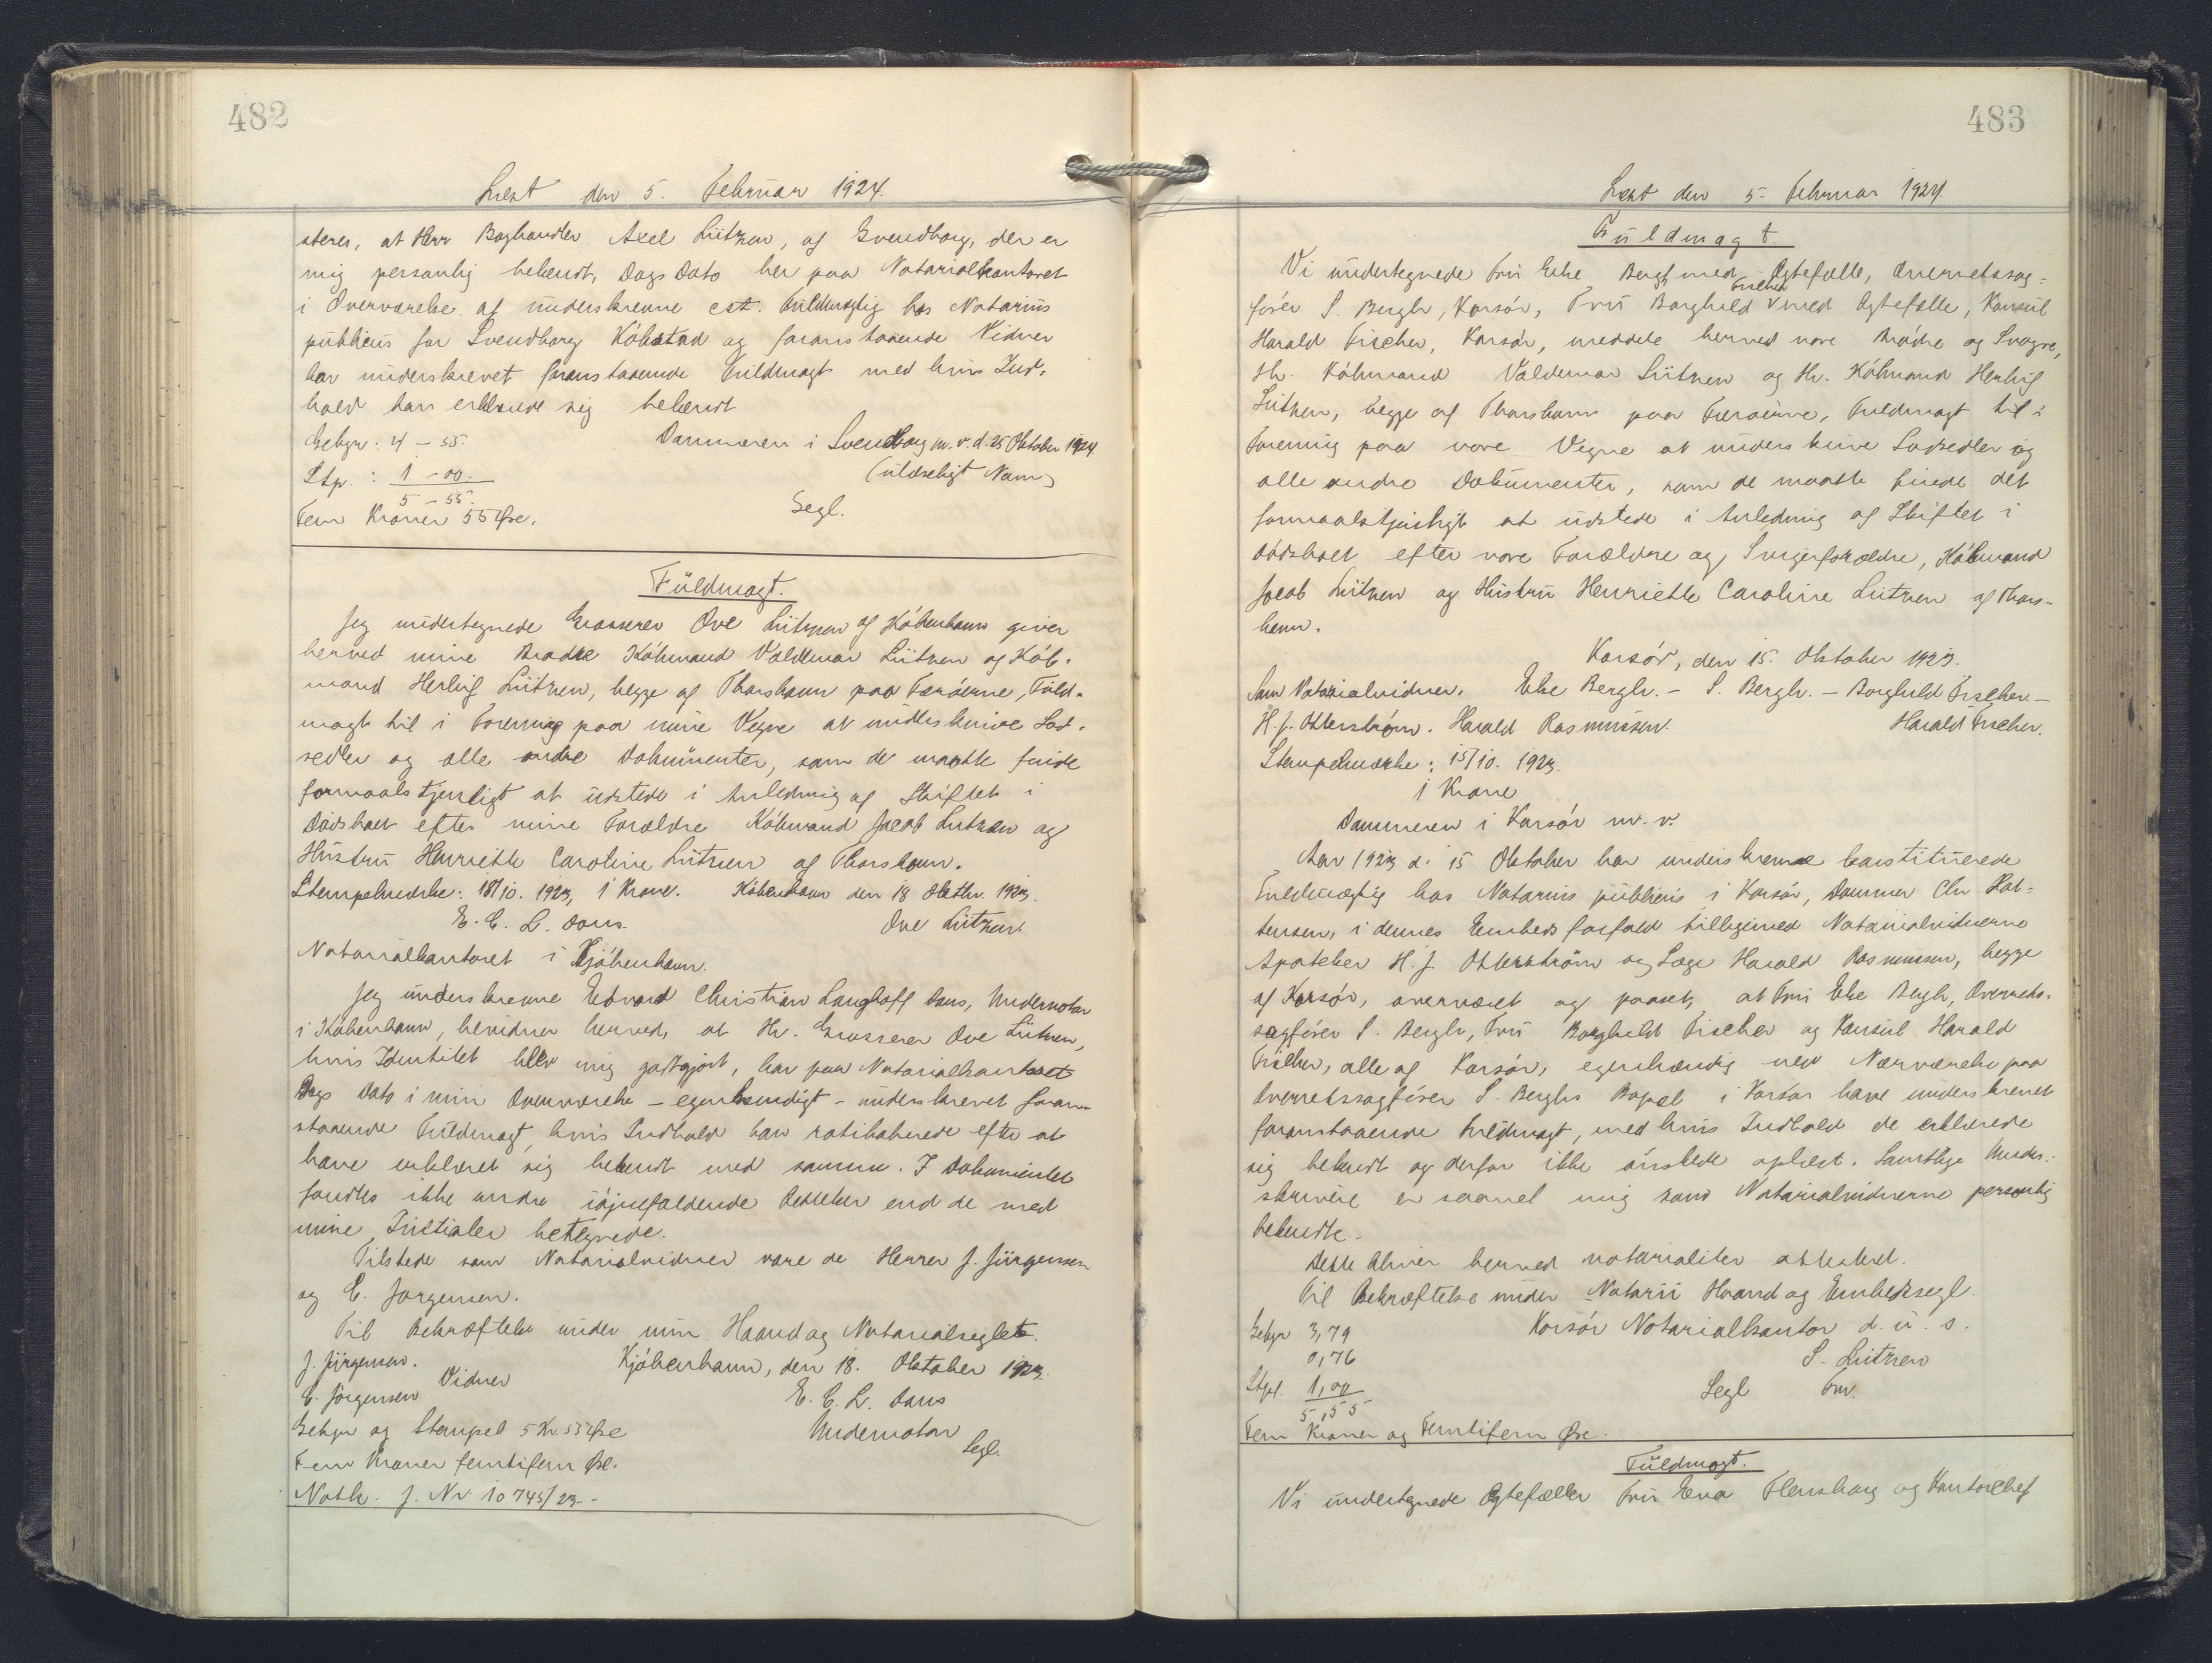 482
Læst den 5. Februar 1924.
sterer, at Herr Boghandler Axel Lützen, af Svendborg, der er
mig personlig bekendt, Dags Dato her paa Notarialkontoret
i Overværelse af underskrevne cst. Fuldmægtig hos Notarius
publicus for Svendborg Købstad og foranstaaende Vidner
har underskrevet foranstaaende Fuldmagt med hvis Ind-
hold han erklærede sig bekendt
Gebyr: 4 - 55. Dommeren i Svendborg m. v. d. 25 Oktober 1924
Stp. : 1 - 00. (ulæseligt Navn)
5 - 55.
Fem Kroner 55 Øre. Segl.
Fuldmagt.
Jeg undertegnede Grosserer Ove Lützen af København giver
herved mine Brødre Købmand Valdemar Lützen og Køb-
mand Herluf Lützen, begge af Thorshavn paa Færøerne, Fuld-
magt til i Forening paa mine Vegne at underskrive Lod-
sedler og alle andre Dokumenter, som de maatte finde
formaalstjenligt at udstede i Anledning af Skiftet i
Dødsboet efter mine Forældre Købmand Jacob Lützen og
Hustru Henriette Caroline Lützen af Thorshavn.
Stempelmærke: 18/10. 1923, 1 Krone. København den 18 Oktbr. 1923.
E. C. L. Dons. Ove Lützen.
Notarialkontoret i Kjøbenhavn.
Jeg underskrevne Edvard Christian Langhoff Dons, Undernotar
i København, bevidner herved, at Hr. Grosserer Ove Lützen,
hvis Identitet blev mig godtgjort, har paa Notarialkontoret
Dags Dato i min Overværelse - egenhændigt - underskrevet foran-
staaende Fuldmagt, hvis Indhold han ratihaberede efter at
have erklæret sig bekendt med samme. I Dokumentet
fandtes ikke andre iøjnefaldende Rettelser end de med
mine Initialer betegnede.
Tilstede som Notarialvidner vare de Herrer J. Jürgensen
og C. Jørgensen.
Til Bekræftelse under min Haand og Notarialseglet.
J. Jürgensen. Kjøbenhavn, den 18. Oktober 1923.
Vidner
C. Jørgensen E. C. L. Dons
Gebyr og Stempel 5 Kr. 55 Øre Undernotar
Segl.
Fem Kroner femtifem Øre.
Notk. J. Nr. 10745/23.-
483
Læst den 5. Februar 1924.
Fuldmagt.
Vi undertegnede Fru Ebe Bergh med Ægtefælle, Overretssag-
Fischer
fører S. Bergh, Korsør, Fru Borghild v med Ægtefælle, Konsul
Harald Fischer, Korsør, meddele herved vore Brødre og Svogre,
Hr. Købmand Valdemar Lützen og Hr. Købmand Herluf
Lützen, begge af Thorshavn paa Færøerne, Fuldmagt til i
Forening paa vore Vegne at underskrive Lodsedler og
alle andre Dokumenter, som de maatte finde det
formaalstjenligt at udstede i Anledning af Skiftet i
Dødsboet efter vore Forældre og Svigerforældre, Købmand
Jacob Lützen og Hustru Henriette Caroline Lützen af Thors-
havn.
Korsør, den 15. Oktober 1923.
Som Notarialvidner. Ebe Bergh. - S. Bergh. - Borghild Fischer -
H. J. Otterstrøm. Harald Rasmussen. Harald Fischer.
Stempelmærke: 15/10. 1923.
1 Krone
Dommeren i Korsør m. v.
Aar 1923 d. 15 Oktober har underskrevne konstituerede
Fuldmægtig hos Notarius publicus i Korsør, Dommer Chr. Hol-
tensen, i dennes Embedsforfald tilligemed Notarialvidnerne
Apoteker H. J. Otterstrøm og Læge Harald Rasmussen, begge
af Korsør, overværet og paaset, at Fru Ebe Bergh, Overrets-
sagfører S. Bergh, Fru Borghild Fischer og Konsul Harald
Fischer, alle af Korsør, egenhændig ved Nærværelse paa
Overretssagfører S. Berghs Bopæl i Korsør have underskrevet
foranstaaende Fuldmagt, med hvis Indhold de erklærede
sig bekendt og derfor ikke ønskede oplæst. Samtlige Under-
skrivere er saavel mig som Notarialvidnerne personlig
bekendte.
Dette bliver herved notarialiter attesteret.
Til Bekræftelse under Notarii Haand og Embedssegl.
Gebyr 3,79 Korsør Notarialkontor d. u. s.
0,76 S. Lützen
Stpl. 1,00 Segl Fm.
5,55
Fem Kroner og Femtifem Øre.
Fuldmagt.
Vi undertegnede Ægtefæller Fru Eva Flensborg og Kontorchef